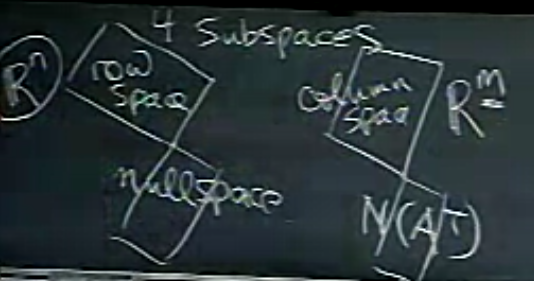 4 Subspaces
Rⁿ
row
space
nullspace
column
spac
Rᵐ
N(Aᵀ)